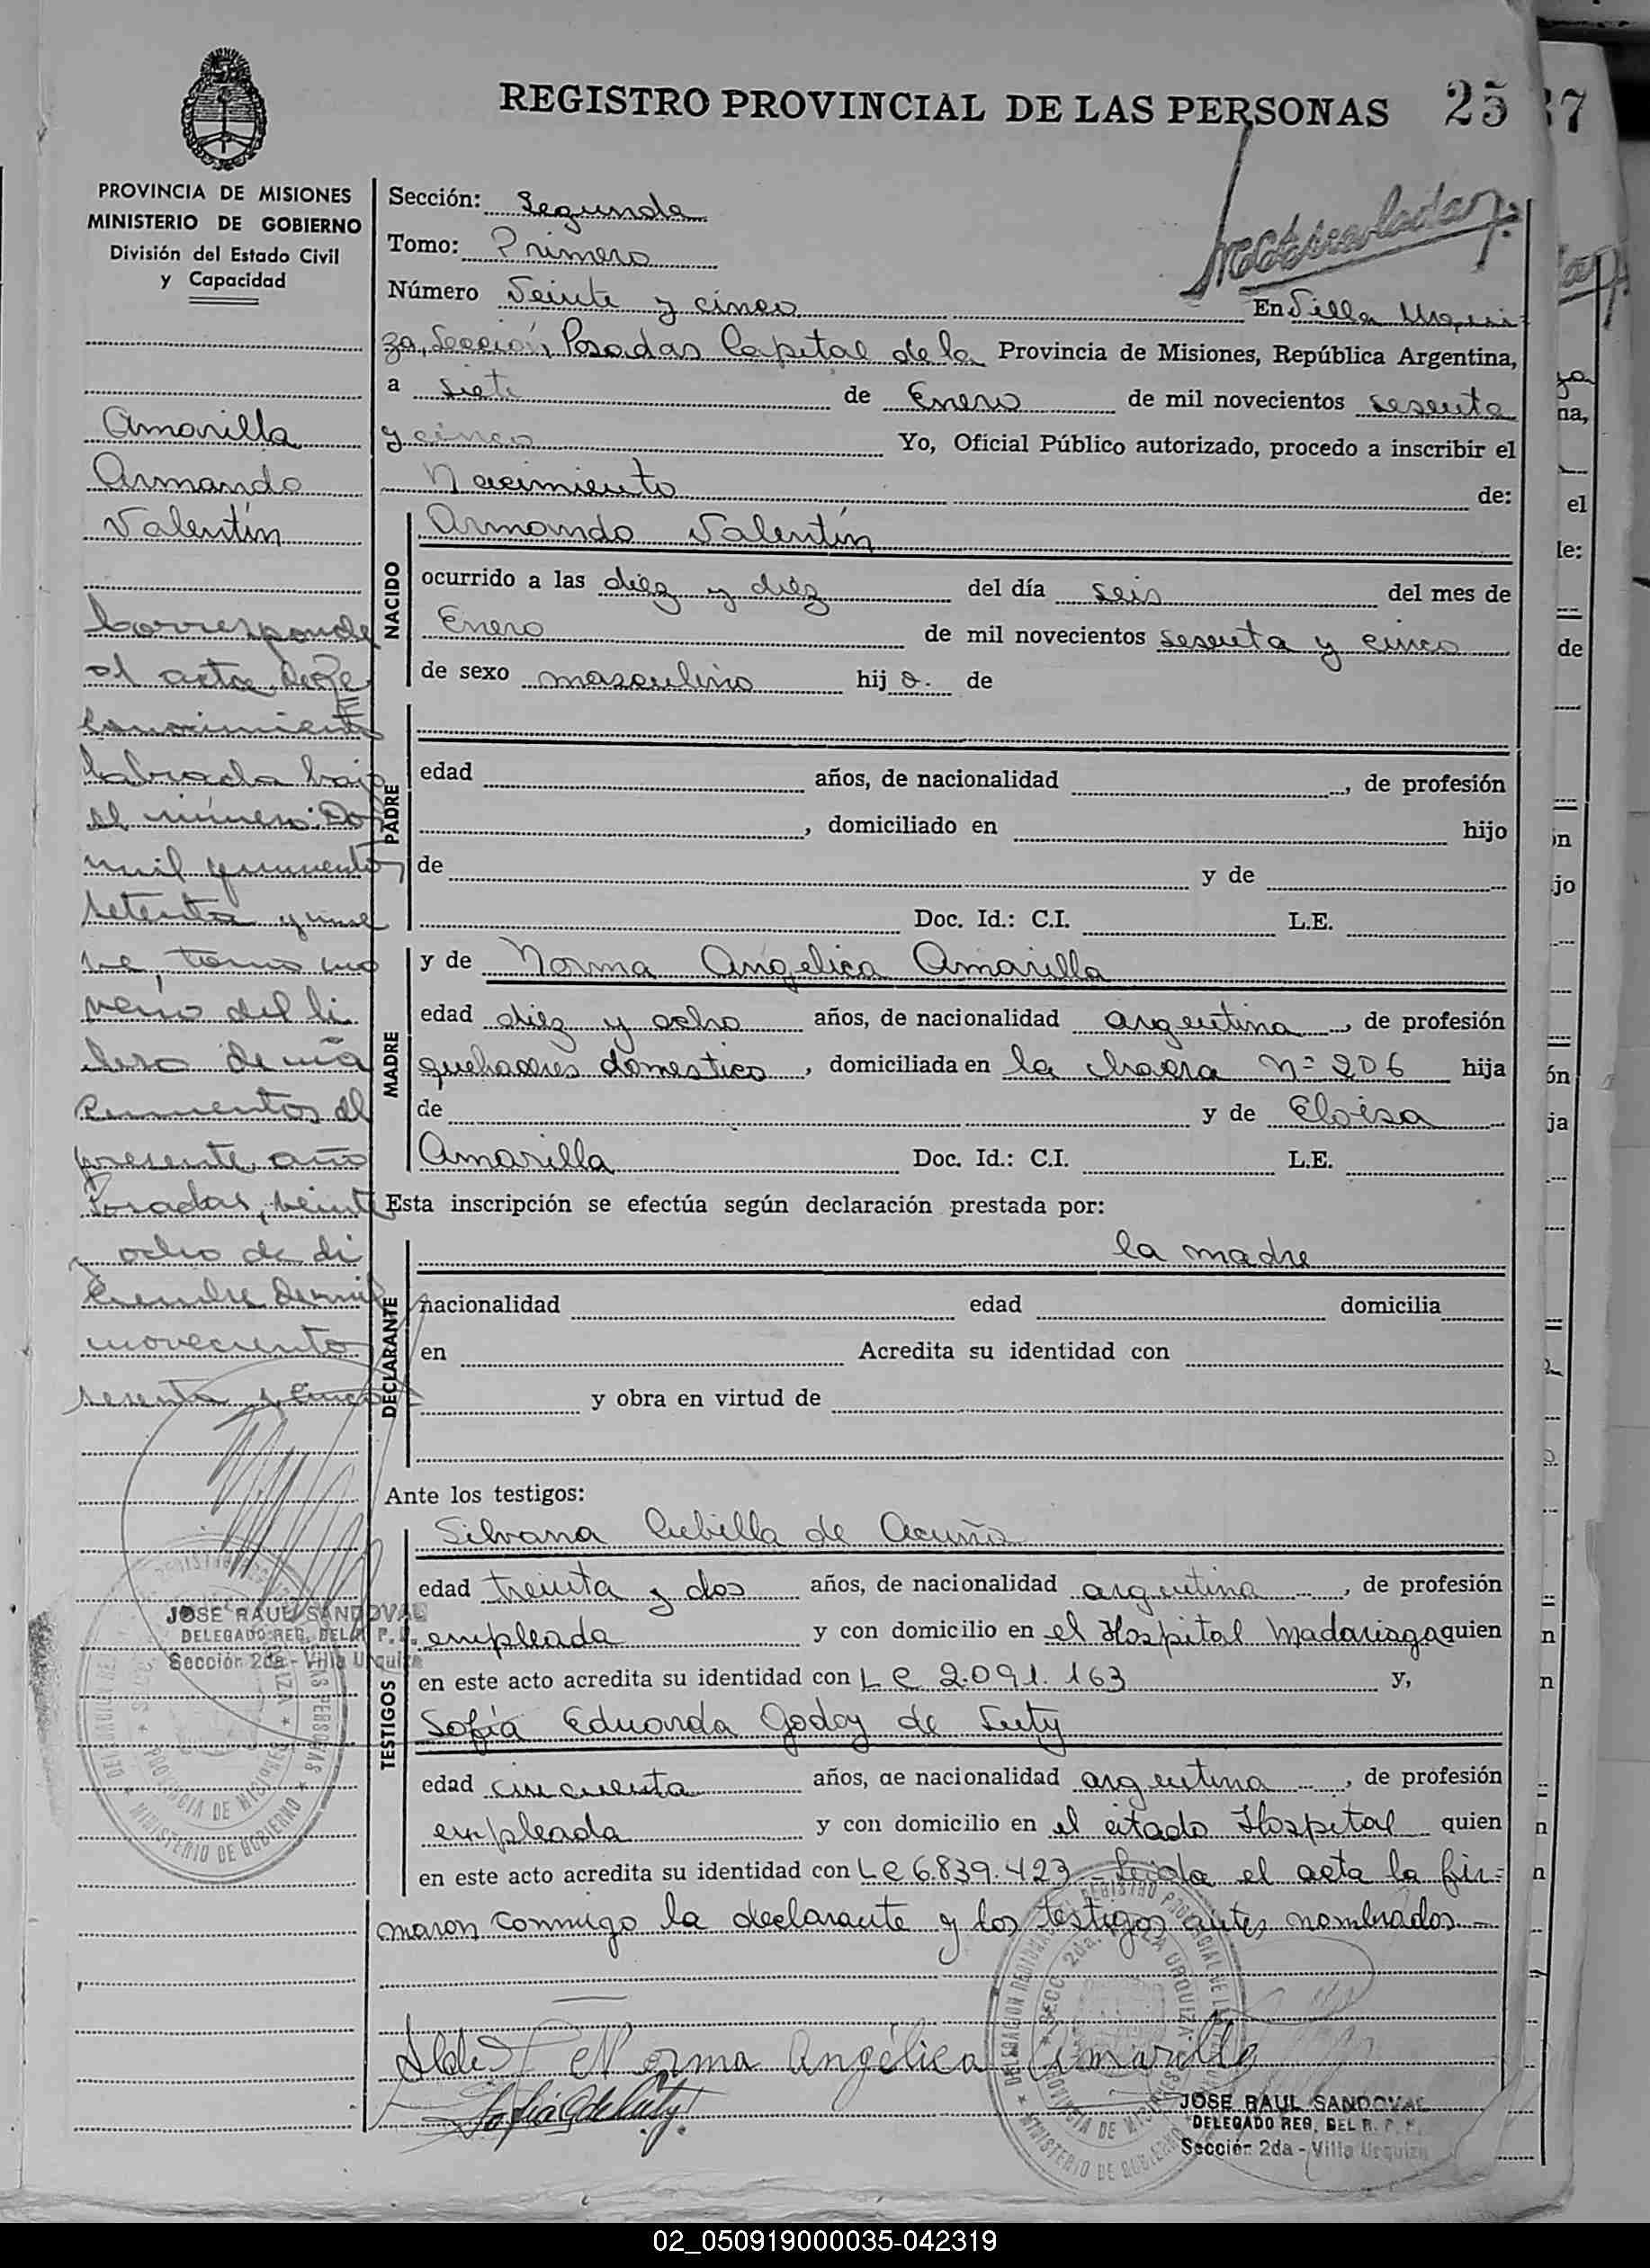 REGISTRO PROVINCIAL DE LAS PERSONAS 25
37
PROVINCIA DE MISIONES
MINISTERIO DE GOBIERNO
División del Estado Civil
y Capacidad
Amarilla
Armando
Valentín
Corresponde
al acta de Re
conocimiento
labrada bajo
el número: Dos
mil quinientos
setenta y nue
ve, tomo no
veno del li
bro de
del
presente año
Posadas, veinte
y ocho de di
ciembre de mil
novecientos
sesenta y cinco
JOSE RAUL SANDOVAL
DELEGADO REG. DEL R. P. P.
Sección 2da - Villa Urquiza
Sección: Segunda
Tomo: Primero
Número Veinte y cinco En Villa Urqui
za, Sección, Posadas Capital de la Provincia de Misiones, República Argentina,
a siete de Enero de mil novecientos sesenta
y cinco Yo, Oficial Público autorizado, procedo a inscribir el
Nacimiento de:
NACIDO
Armando Valentín
ocurrido a las diez y diéz del día seis del mes de
Enero de mil novecientos sesenta y cinco
de sexo masculino hij o. de
PADRE
edad años, de nacionalidad , de profesión
, domiciliado en hijo
de y de
Doc. Id.: C.I. L.E.
MADRE
y de Norma Angelica Amarilla
edad diez y ocho años, de nacionalidad argentina , de profesión
quehaceres domestico , domiciliada en la chacra Nº 206 hija
de y de Eloisa
Amarilla Doc. Id.: C.I. L.E.
Esta inscripción se efectúa según declaración prestada por:
DECLARANTE
la madre
nacionalidad edad domicilia
en Acredita su identidad con
y obra en virtud de
Ante los testigos:
TESTIGOS
Silvana Cubilla de Acuña
edad treinta y dos años, de nacionalidad argentina , de profesión
empleada y con domicilio en el Hospital Madariaga quien
en este acto acredita su identidad con L C 2.091.163 y,
Sofía Eduarda Godoy de Suty
edad cincuenta años, de nacionalidad argentina , de profesión
empleada y con domicilio en el citado Hospital quien
en este acto acredita su identidad con L C 6.839.423 - Leida el acta la fir=
maron conmigo la declarante y los testigos antes nombrados
Norma Angélica Amarilla
JOSE RAUL SANDOVAL
DELEGADO REG. DEL R. P. P.
Sección 2da - Villa Urquiza
02_050919000035-042319